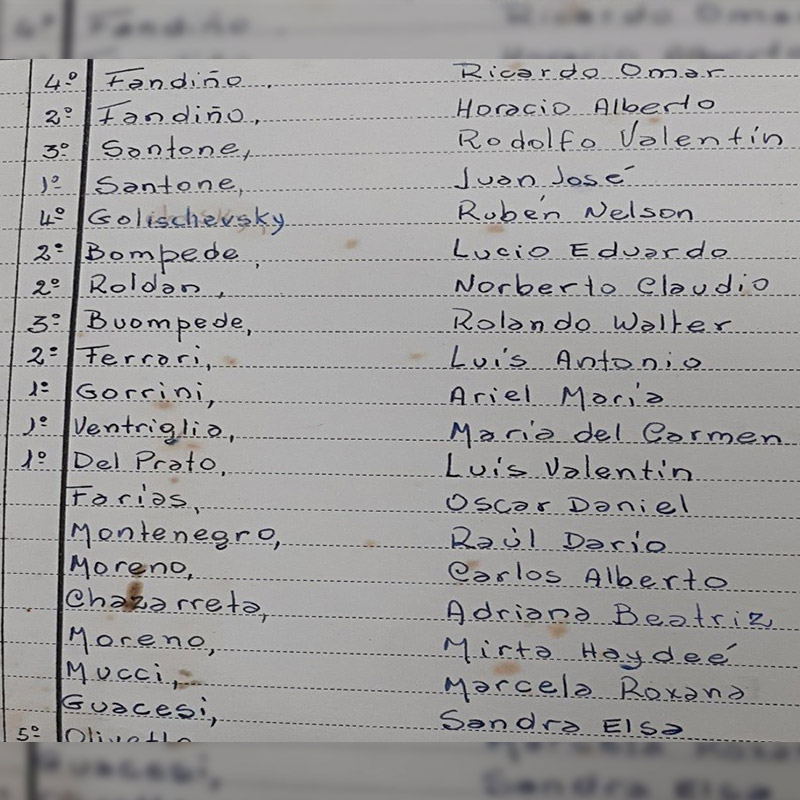 4º Fandiño, Ricardo Omar
2º Fandiño, Horacio Alberto
3º Santone, Rodolfo Valentín
1º Santone, Juan José
4º Golischevsky Rubén Nelson
2º Bompede, Lucio Eduardo
2º Roldan, Norberto Claudio
3º Buompede, Rolando Walter
2º Ferrari, Luís Antonio
1º Gorrini, Ariel María
1º Ventriglia, María del Carmen
1º Del Prato, Luís Valentín
Farías, Oscar Daniel
Montenegro, Raúl Darío
Moreno, Carlos Alberto
Chazarreta, Adriana Beatriz
Moreno, Mirta Haydeé
Mucci, Marcela Roxana
Guacesi, Sandra Elsa
5º